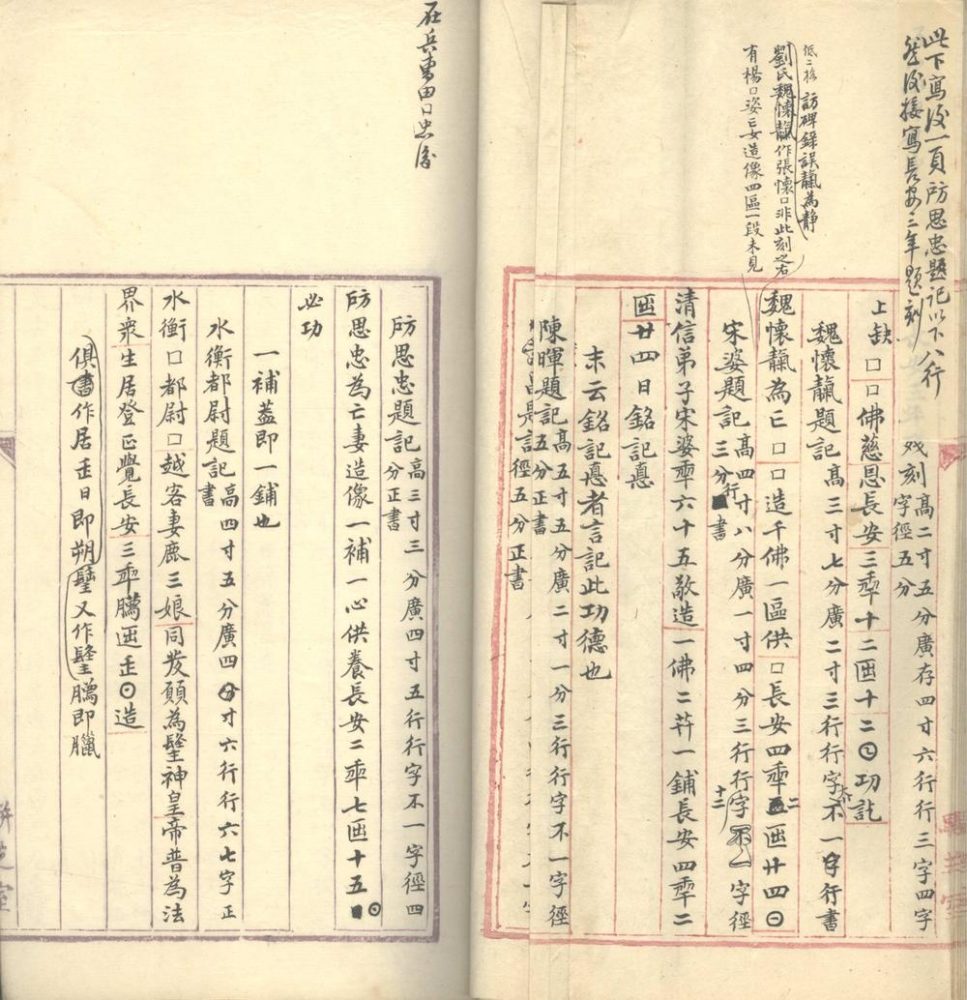 此下寫後一頁防思忠題記以下八行
然後接寫長安三年題刻
殘刻高二寸五分廣存四寸六行行三字四字
字徑五分
上缺口口佛慈恩長安三𠡦十二𠥱十二〇功訖
魏懷䫴題記高三寸七分廣二寸三行行字不一字行書
低二格訪碑錄誤䫴為靜
劉氏魏懷䫴作張懷口非此刻之右
有楊口姿亡女造像四區一段未見
魏懷䫴為亡口口造千佛一區供口長安四𠡦二𠥱廿四〇
宋婆題記高四寸八分廣一寸四分三行行十二字徑
三分行書
清信弟子宋婆𠡦六十五敬造一佛二菩一鋪長安四𠡦二
𠥱廿四日銘記惪
末云銘記惪者言記此功德也
陳暉題記高五寸五分廣二寸一分三行行字不一字徑
五分正書
徑五分正書
在兵曹田口忠後
防思忠題記高三寸三分廣四寸五行行字不一字徑四
分正書
防思忠為亡妻造像一補一心供養長安二𠡦七𠥱十五〇
必功
一補蓋即一鋪也
水衡都尉題記高四寸五分廣四寸六行行六七字正
書
水衡口都尉口越客妻鹿三娘同发願為𨲢神皇帝普為法
界衆生居登正覺長安三𠡦臈𠥱𠙺〇造
俱作居𠙺日即朔𨲢又作𨲢臈即臘